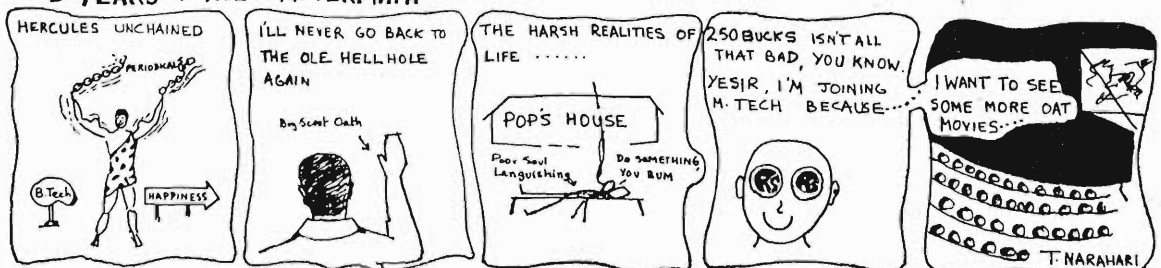 5 YEARS
HERCULES UNCHAINED
PERIODICALS
B.Tech
HAPPINESS
I'LL NEVER GO BACK TO
THE OLE HELLHOLE
AGAIN
Boy Scout Oath
THE HARSH REALITIES OF
LIFE ......
POP'S HOUSE
Poor Soul
Languishing
DO SOMETHING,
YOU BUM
250 BUCKS ISN'T ALL
THAT BAD, YOU KNOW.
YESIR, I'M JOINING
M.TECH BECAUSE.....
RS RS
I WANT TO SEE
SOME MORE OAT
MOVIES....
T. NARAHARI